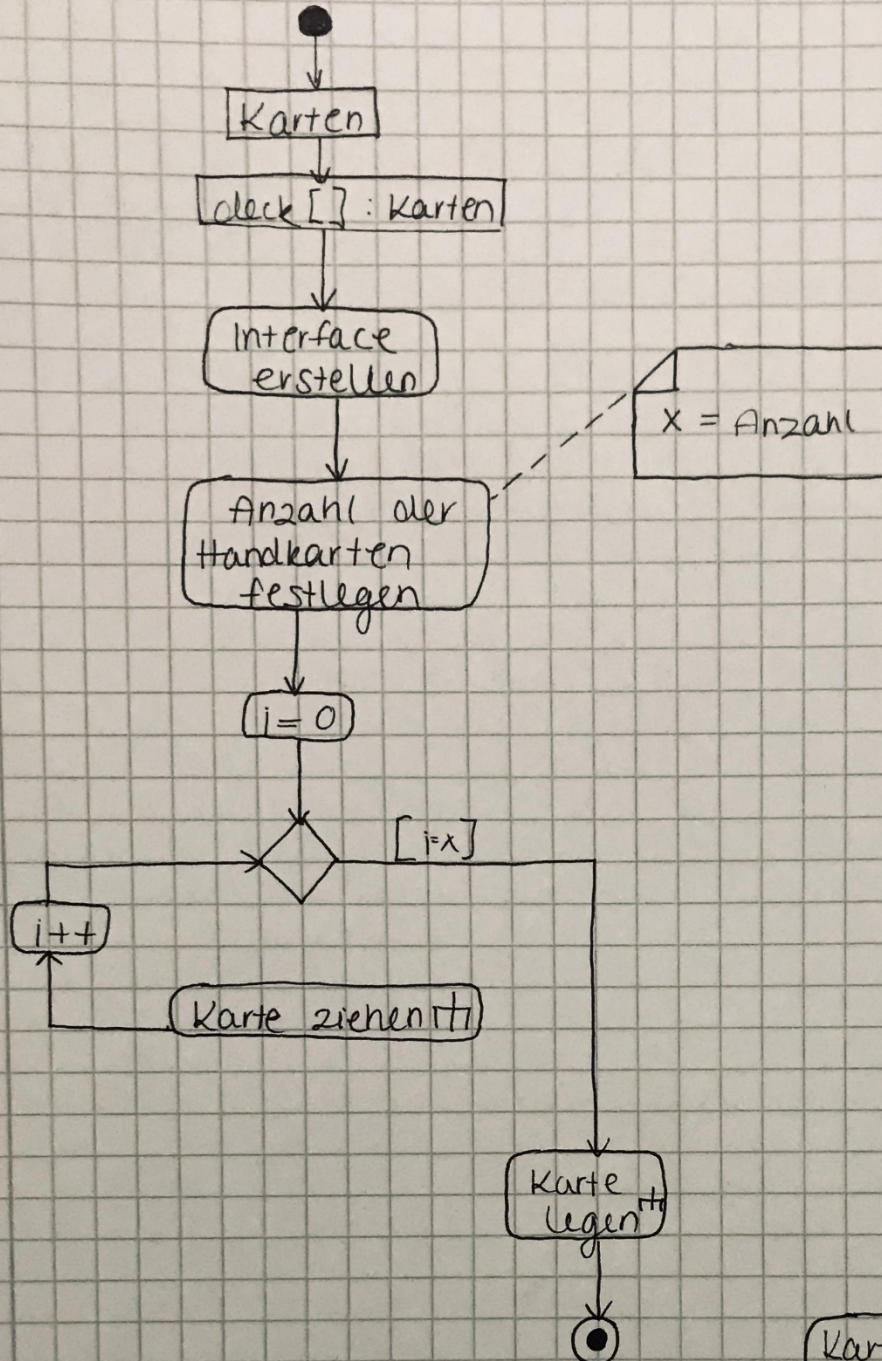 Karten
deck [] : Karten
Interface
erstellen
x = Anzahl
Anzahl der
Handkarten
festlegen
i = 0
[i=x]
i++
Karte ziehen
Karte
legen
Kar